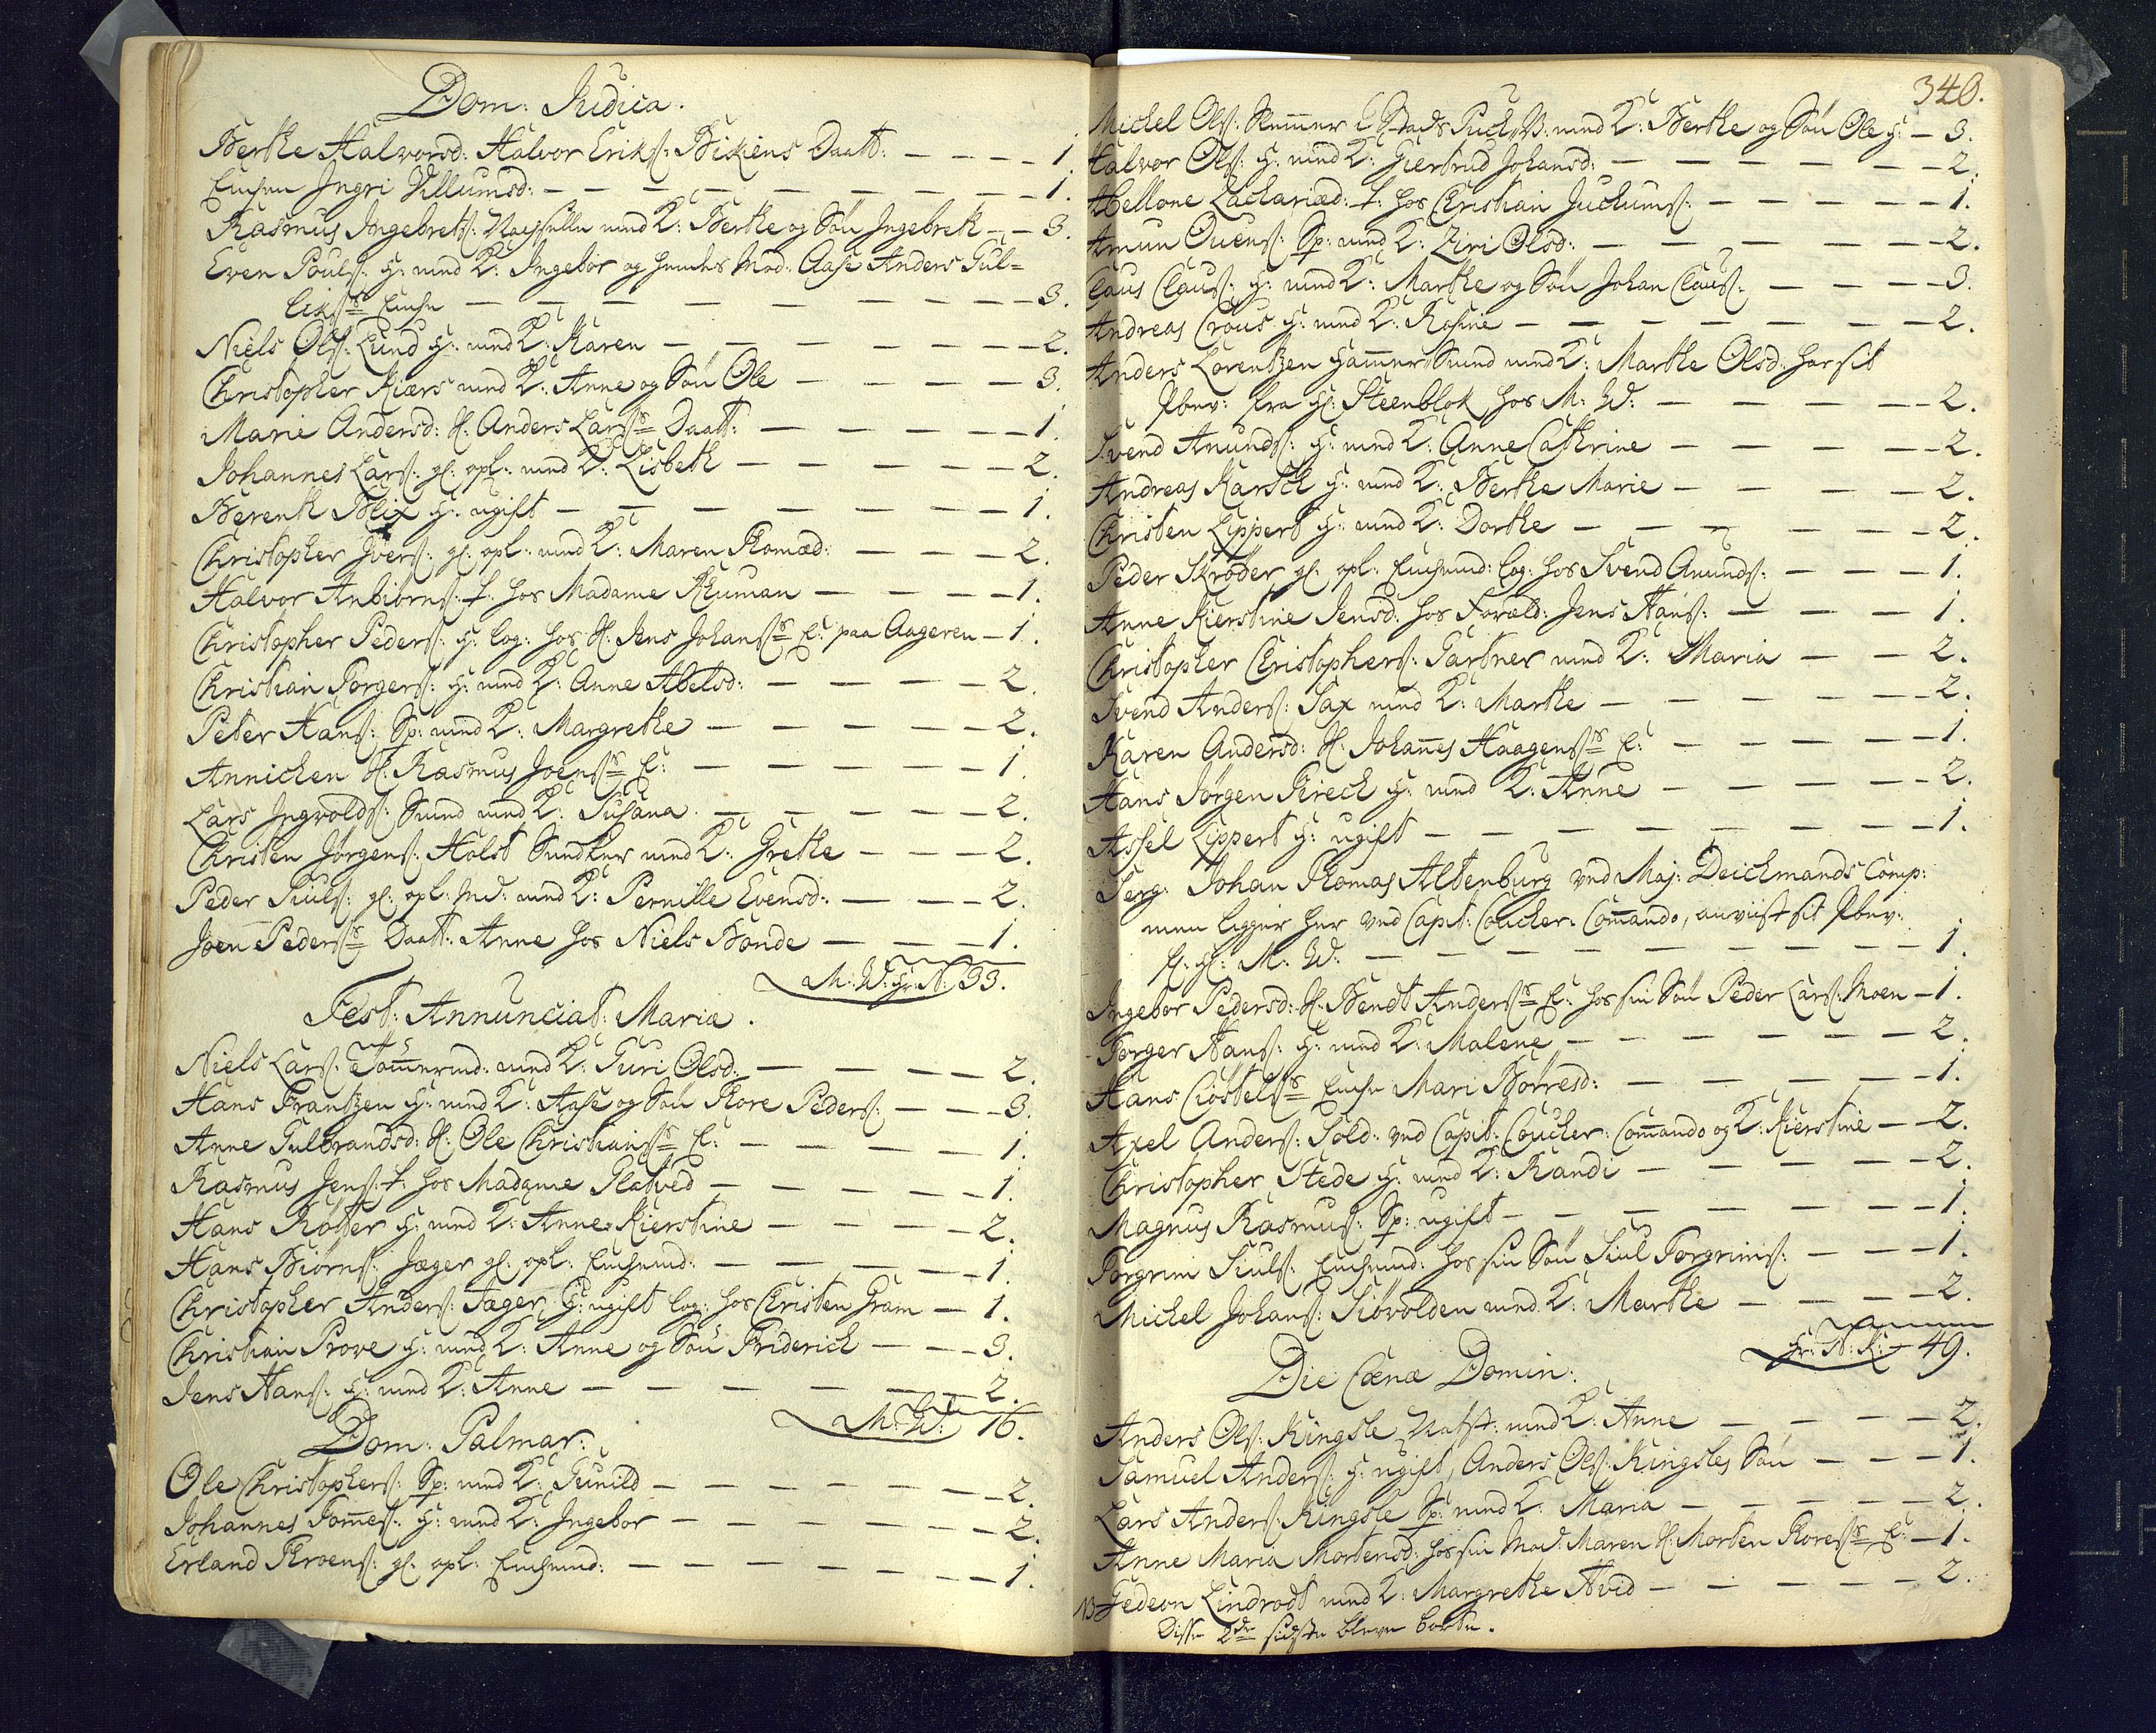 Dom: Judica.
Berthe Halvorsd: Halvor Erikß: Bikiens Daatt: — — — — 1.
Enchen Ingri Villumsd: — — — — — — 1.
Rasmus Ingebretß: med K: Berthe og Søn Ingebreth — — 3.
Even Poulß: H: med K: Ingebor og hendes Mod: Aase Anders Gul=
Erikß Enche — — — — — — 3.
Niels Olß: Lund H: med K: Karen — — — — — 2.
Christopher Kiærs med K: Anne og Søn Ole — — — — 3.
Marie Andersd: S: Anders Larsß Daatt: — — — — — 1.
Johannes Larß: gl: opl: med K: Lisbeth — — — — — 2.
Berenth Blix H: ugift — — — — — — 1.
Christopher Iverß: gl: opl: med K: Maren Thomæd: — — — 2.
Halvor Anbiörnß: t: hos Madame Neuman — — — — 1.
Christopher Pederß: H: log: hos S: Jens Johanß E: paa Aageren — 1.
Christian Torgerß: H: med K: Anne Abelsd: — — — — 2.
Peter Hanß: Sp: med K: Margrethe — — — — — 2.
Annichen S: Rasmus Joenß E: — — — — — 1.
Lars Ingvoldß: Smed med K: Susana. — — — — 2.
Christen Jørgenß: Holst Snedker med K: Grethe — — — 2.
Peder Siulß: gl: opl: Ind: med K: Pernille Evensd: — — — 2.
Joen Pederß Daatt: Anne hos Niels Bonde — — — 1.
M: W: Hr: N: 33.
Fest: Annunciat: Mariæ.
Niels Larß: Tømermd: med K: Guri Olsd: — — — — 2.
Hans Frantzen H: med K: Aase og Søn Thore Pederß: — — — 3.
Anne Gulbrandsd: S: Ole Christianß E: — — — — 1.
Rasmus Jenß: t: hos Madame Flatved — — — — — 1.
Hans Rotter H: med K: Anne Kierstine — — — — 2.
Hans Biörnß: Jæger gl: opl: Enchemd: — — — — — 1.
Christopher Anderß: Jæger H: ugift log: hos Christen Gram — 1.
Christian Prove H: med K: Anne og Søn Friderich — — — 3.
Jens Hanß: H: med K: Anne — — — — — — 2.
M: W: 16.
Dom: Palmar:
Ole Christopherß: Sp: med K: Gunild — — — — — 2.
Johannes Tomeß: H: med K: Ingebor — — — — — 2.
Erland Throenß: gl: opl: Enchemd: — — — — — 1.
340.
Michel Olß: med K: Berthe og Søn Ole H: — 3.
Halvor Olß: H: med K: Giertrud Johansd: — — — — — 2.
Abellone Zachariæd: t: hos Christian Juchumß: — — — — 1.
Amun Ouenß: Sp: med K: Ziri Olsd: — — — — — 2.
Claus Clausß: H: med K: Marthe og Søn Johan Clausß: — — — 3.
Andreas Crous H: med K: Rosine — — — — — — 2.
Anders Lorentzen Hammer Smed med K: Marthe Olsd: har sit
Absv: fra Hr: Steenblok hos M: W: — — — — — 2.
Svend Amundß: H: med K: Anne Cathrine — — — — — 2.
Andreas Karsch H: med K: Berthe Marie — — — — — 2.
Christen Lippert H: med K: Dorthe — — — — — 2.
Peder Skrøder gl: opl: Enchemd: log: hos Svend Amundß: — — — 1.
Anne Kierstine Jensd: hos Foræld: Jens Hansß: — — — — 1.
Christopher Christopherß: Gartner med K: Maria — — — 2.
Svend Anderß: Sax med K: Marthe — — — — — 2.
Karen Andersd: S: Johanes Haagenß E: — — — — — 1.
Hans Jörgen Kirech H: med K: Anne — — — — — 2.
Assel Lippert H: ugift — — — — — — 1.
Serg: Johan Thomas Altenburg ved Maj: Deichmands Comp:
men ligger her ved Capit: Coucher: Comando, anviist sit Absv:
M: W: — — — — — — 1.
Ingebor Pedersd: S: Bendt Anderß E: hos sin Søn Peder Larß: Moen — 1.
Torger Hansß: H: med K: Malene — — — — — — 2.
Hans Ciöstelß Enche Mari Börresd: — — — — — 1.
Axel Anderß: Sold: ved Capit: Coucher: Comando og K: Kierstine — — 2.
Christopher Stede H: med K: Randi — — — — — 2.
Magnus Rasmusß: Sp: ugift — — — — — — 1.
Torgrim Siulß: Enchemd: hos sin Søn Siul Torgrimß: — — — 1.
Michel Johanß: Siøvolden med K: Marthe — — — — 2.
Hr: N: K: — 49.
Die Coenæ Domin:
Anders Olß: Kingsle med K: Anne — — — — 2.
Samuel Anderß: H: ugift, Anders Olß: Kingsles Søn — — — 1.
Lars Anderß: Kingsle Sp: med K: Maria — — — — — 2.
Anne Maria Mortensd: hos sin Mod: Maren S: Morten Thoreß E: — 1.
NB Gedeon Lindrodt med K: Margrethe Avid — — — — 2.
Disse 2de sidste bleve borte.